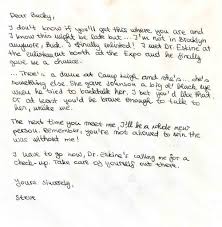 Dear Bucky,
I don't know if you'll get this where you are and
I know this might be late but... I'm not in Brooklyn
anymore, Buck. I finally enlisted! I met Dr. Erskine at
the enlistment booth at the Expo and he finally
gave me a chance.
... There's a dame at Camp Lehigh and she's... she's
something else. She gave Johnson a big ol' black eye
when he tried to backtalk her. I bet you'd like her.
Or at least you'd be brave enough to talk to
her, unlike me.
The next time you meet me, I'll be a whole new
person. Remember, you're not allowed to win the
war without me!
I have to go now, Dr. Erskine's calling me for a
check-up. Take care of yourself out there.
Yours Sincerely,
Steve